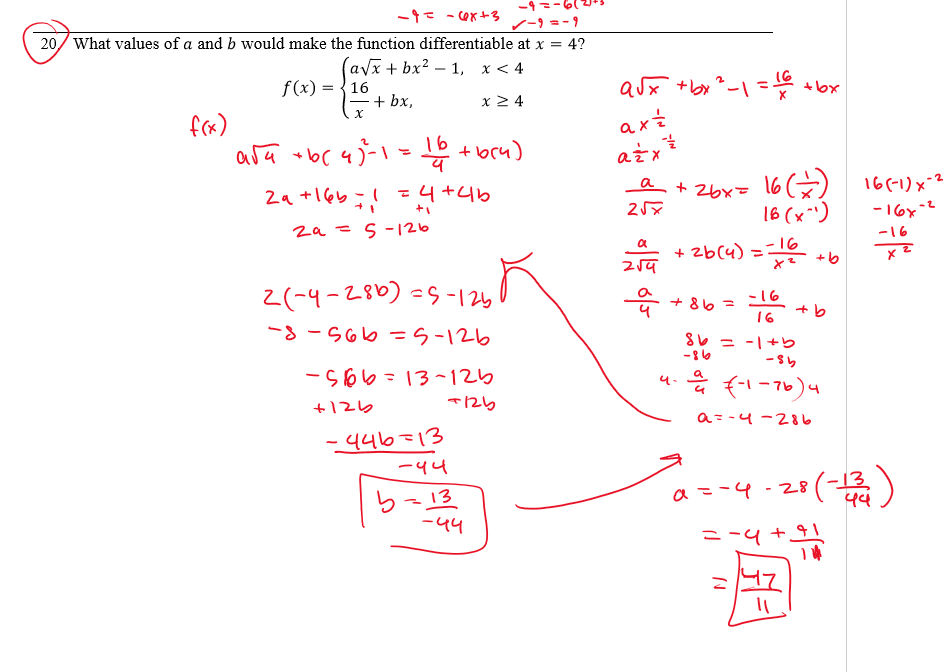 -9 = -6x+3 -9=-6(2)+3
✓-9=-9
20. What values of a and b would make the function differentiable at x = 4?
f(x) = { a√x + bx² − 1, x < 4
16/x + bx, x ≥ 4
f(x)
a√4 + b(4)²-1 = 16/4 + b(4)
2a+16b-1 = 4+4b
+1 +1
2a = 5-12b
2(-4-28b) = 5-12b
-8-56b = 5-12b
-56b = 13-12b
+12b +12b
-44b=13
-44
b = 13/-44
a√x + bx²-1 = 16/x + bx
ax^(1/2)
a 1/2 x^(-1/2)
a/(2√x) + 2bx = 16(1/x)
16(x⁻¹)
16(-1)x⁻²
-16x⁻²
-16/x²
a/(2√4) + 2b(4) = -16/x² + b
a/4 + 8b = -16/16 + b
8b = -1+b
-8b -8b
4· a/4 = (-1-7b)4
a=-4-28b
a = -4 - 28(-13/44)
= -4 + 91/11
= 47/11